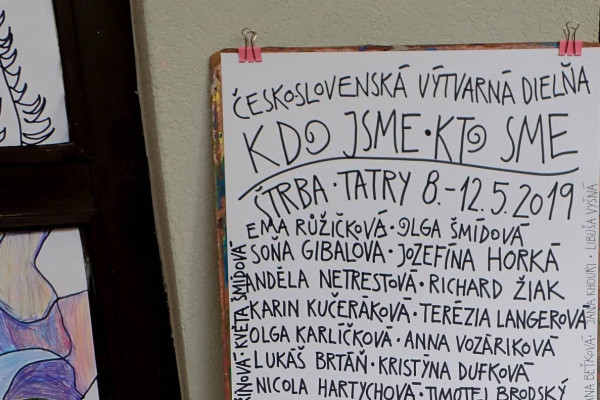 ČESKOSLOVENSKÁ VÝTVARNÁ DIELŇA
KDO JSME · KTO SME
ŠTRBA · TATRY 8.-12.5.2019
EMA RŮŽIČKOVÁ · OLGA ŠMÍDOVÁ
SOŇA GIBALOVÁ · JOZEFÍNA HORKÁ
ANDĚLA NETRESTOVÁ · RICHARD ŽIAK
KARIN KUČERÁKOVÁ · TERÉZIA LANGEROVÁ
OLGA KARLÍČKOVÁ · ANNA VOZÁRIKOVÁ
LUKÁŠ BRTÁŇ · KRISTÝNA DUFKOVÁ
NICOLA HARTYCHOVÁ · TIMOTEJ BRODSKÝ
KVĚTA ŠMÍDOVÁ
BEŤKOVÁ · JANA KHOURI · LIBUŠA VYŠNÁ